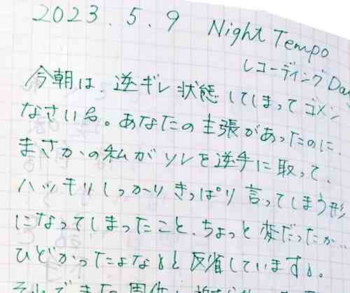 2023.5.9 Night Tempo
レコーディングDa
今朝は、逆ギレ状態してしまってゴメン
なさいる。あなたの主張があったのに、
まさかの私がソレを逆手に取って、
ハッキリしっかりきっぱり言ってしまう形
になってしまったこと、ちょっと変だったか…
ひどかったよなぁと反省しています。